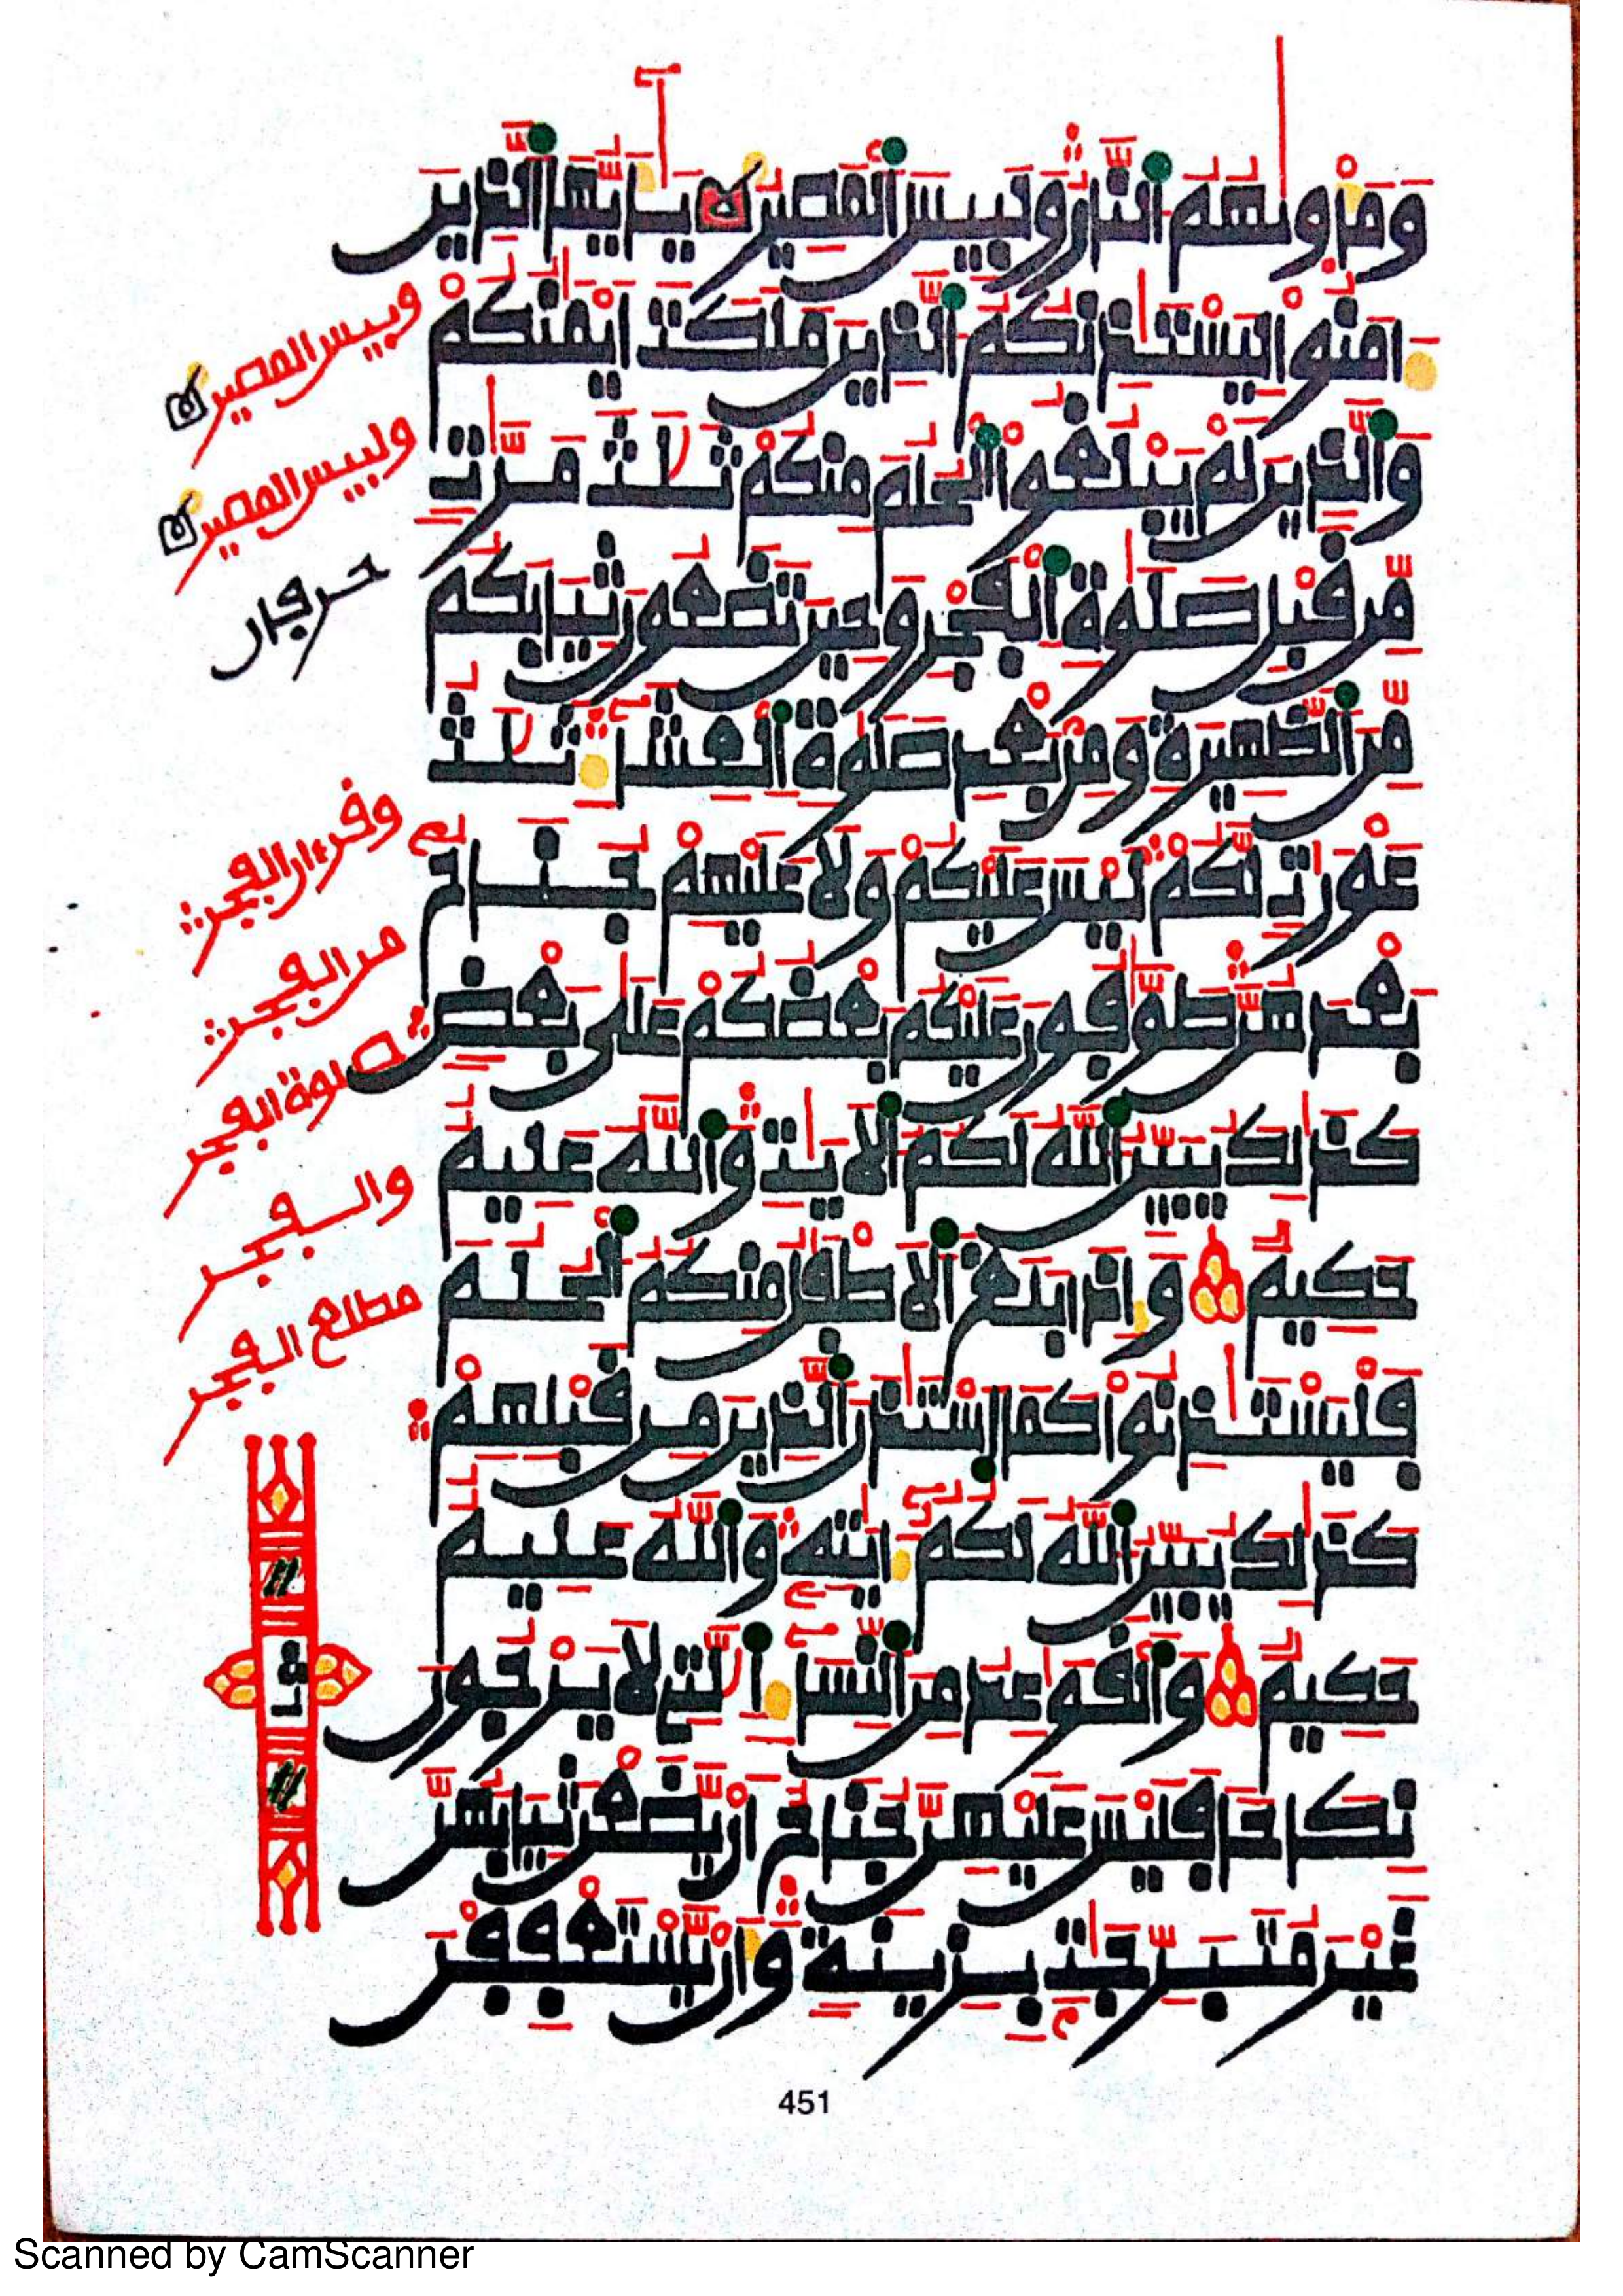 وَمَأْوَىٰهُمُ النَّارُ وَلَبِيسَ الْمَصِيرُ يَٰأَيُّهَا الَّذِينَ
ءَامَنُوا لِيَسْتَـٔذِنكُمُ الَّذِينَ مَلَكَتْ أَيْمَٰنُكُمْ
وَالَّذِينَ لَمْ يَبْلُغُوا الْحُلُمَ مِنكُمْ ثَلَٰثَ مَرَّٰتٍ
مِّن قَبْلِ صَلَوٰةِ الْفَجْرِ وَحِينَ تَضَعُونَ ثِيَابَكُم
مِّنَ الظَّهِيرَةِ وَمِنۢ بَعْدِ صَلَوٰةِ الْعِشَاءِ ثَلَٰثُ
عَوْرَٰتٍ لَّكُمْ لَيْسَ عَلَيْكُمْ وَلَا عَلَيْهِمْ جُنَاحٌ
بَعْدَهُنَّ طَوَّٰفُونَ عَلَيْكُم بَعْضُكُمْ عَلَىٰ بَعْضٍ
كَذَٰلِكَ يُبَيِّنُ اللَّهُ لَكُمُ الْأَيَٰتِ وَاللَّهُ عَلِيمٌ
حَكِيمٌ وَإِذَا بَلَغَ الْأَطْفَٰلُ مِنكُمُ الْحُلُمَ
فَلْيَسْتَـٔذِنُوا كَمَا اسْتَـٔذَنَ الَّذِينَ مِن قَبْلِهِمْ
كَذَٰلِكَ يُبَيِّنُ اللَّهُ لَكُمْ ءَايَٰتِهِ وَاللَّهُ عَلِيمٌ
حَكِيمٌ وَالْقَوَٰعِدُ مِنَ النِّسَاءِ الَّٰتِي لَا يَرْجُونَ
نِكَاحًا فَلَيْسَ عَلَيْهِنَّ جُنَاحٌ أَنْ يَّضَعْنَ ثِيَابَهُنَّ
غَيْرَ مُتَبَرِّجَٰتٍ بِزِينَةٍ وَأَنْ يَّسْتَعْفِفْنَ
وبيس المصير
ولبيس المصير
حرفان
وقرءان الفجر
من الفجر
صلوة الفجر
والفجر
مطلع الفجر
451
Scanned by CamScanner